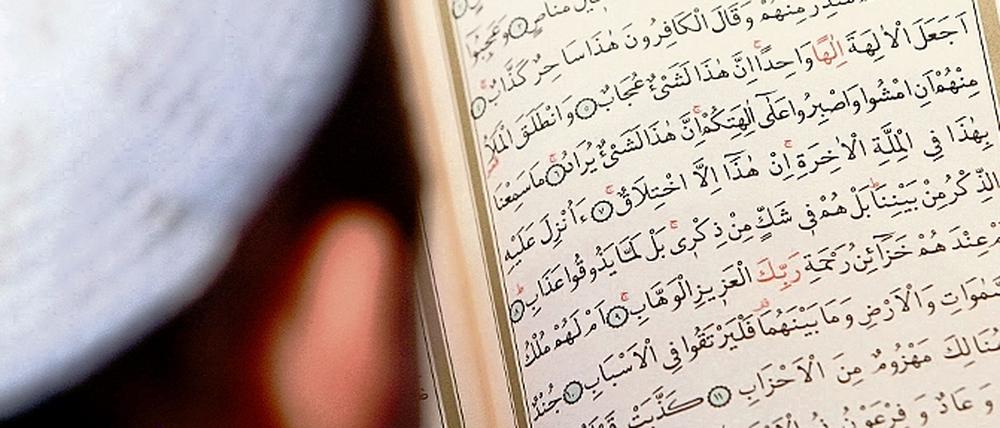 مَنَاصٍ ﴿٣﴾ وَعَجِبُوا
مِنْهُمْ وَقَالَ الْكَافِرُونَ هٰذَا سَاحِرٌ كَذَّابٌ ﴿٤﴾
اَجَعَلَ الْاٰلِهَةَ اِلٰهًا وَاحِدًا اِنَّ هٰذَا لَشَىْءٌ عُجَابٌ ﴿٥﴾ وَانْطَلَقَ الْمَلَاُ
مِنْهُمْ اَنِ امْشُوا وَاصْبِرُوا عَلٰٓى اٰلِهَتِكُمْ اِنَّ هٰذَا لَشَىْءٌ يُرَادُ ﴿٦﴾ مَا سَمِعْنَا
بِهٰذَا فِى الْمِلَّةِ الْاٰخِرَةِ اِنْ هٰذَٓا اِلَّا اخْتِلَاقٌ ﴿٧﴾ ءَاُنْزِلَ عَلَيْهِ
الذِّكْرُ مِنْ بَيْنِنَا بَلْ هُمْ فِى شَكٍّ مِنْ ذِكْرِى بَلْ لَمَّا يَذُوقُوا عَذَابِ ﴿٨﴾
عِنْدَهُمْ خَزَٓائِنُ رَحْمَةِ رَبِّكَ الْعَزِيزِ الْوَهَّابِ ﴿٩﴾ اَمْ لَهُمْ مُلْكُ
وَالْاَرْضِ وَمَا بَيْنَهُمَا فَلْيَرْتَقُوا فِى الْاَسْبَابِ ﴿١٠﴾ جُنْدٌ
مَهْزُومٌ مِنَ الْاَحْزَابِ ﴿١١﴾ كَذَّبَتْ
وَعَادٌ وَفِرْعَوْنُ